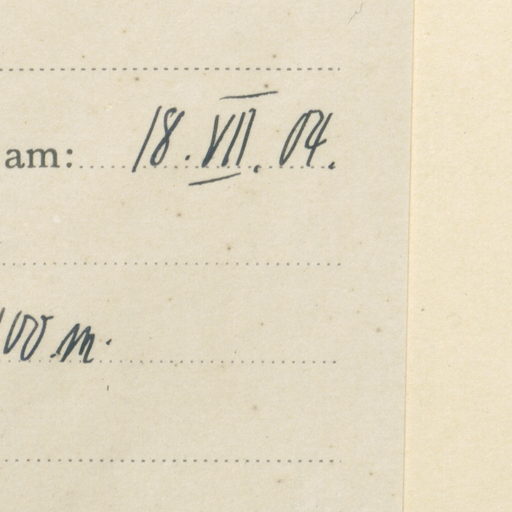 am: 18. VII. 04.
00 m.